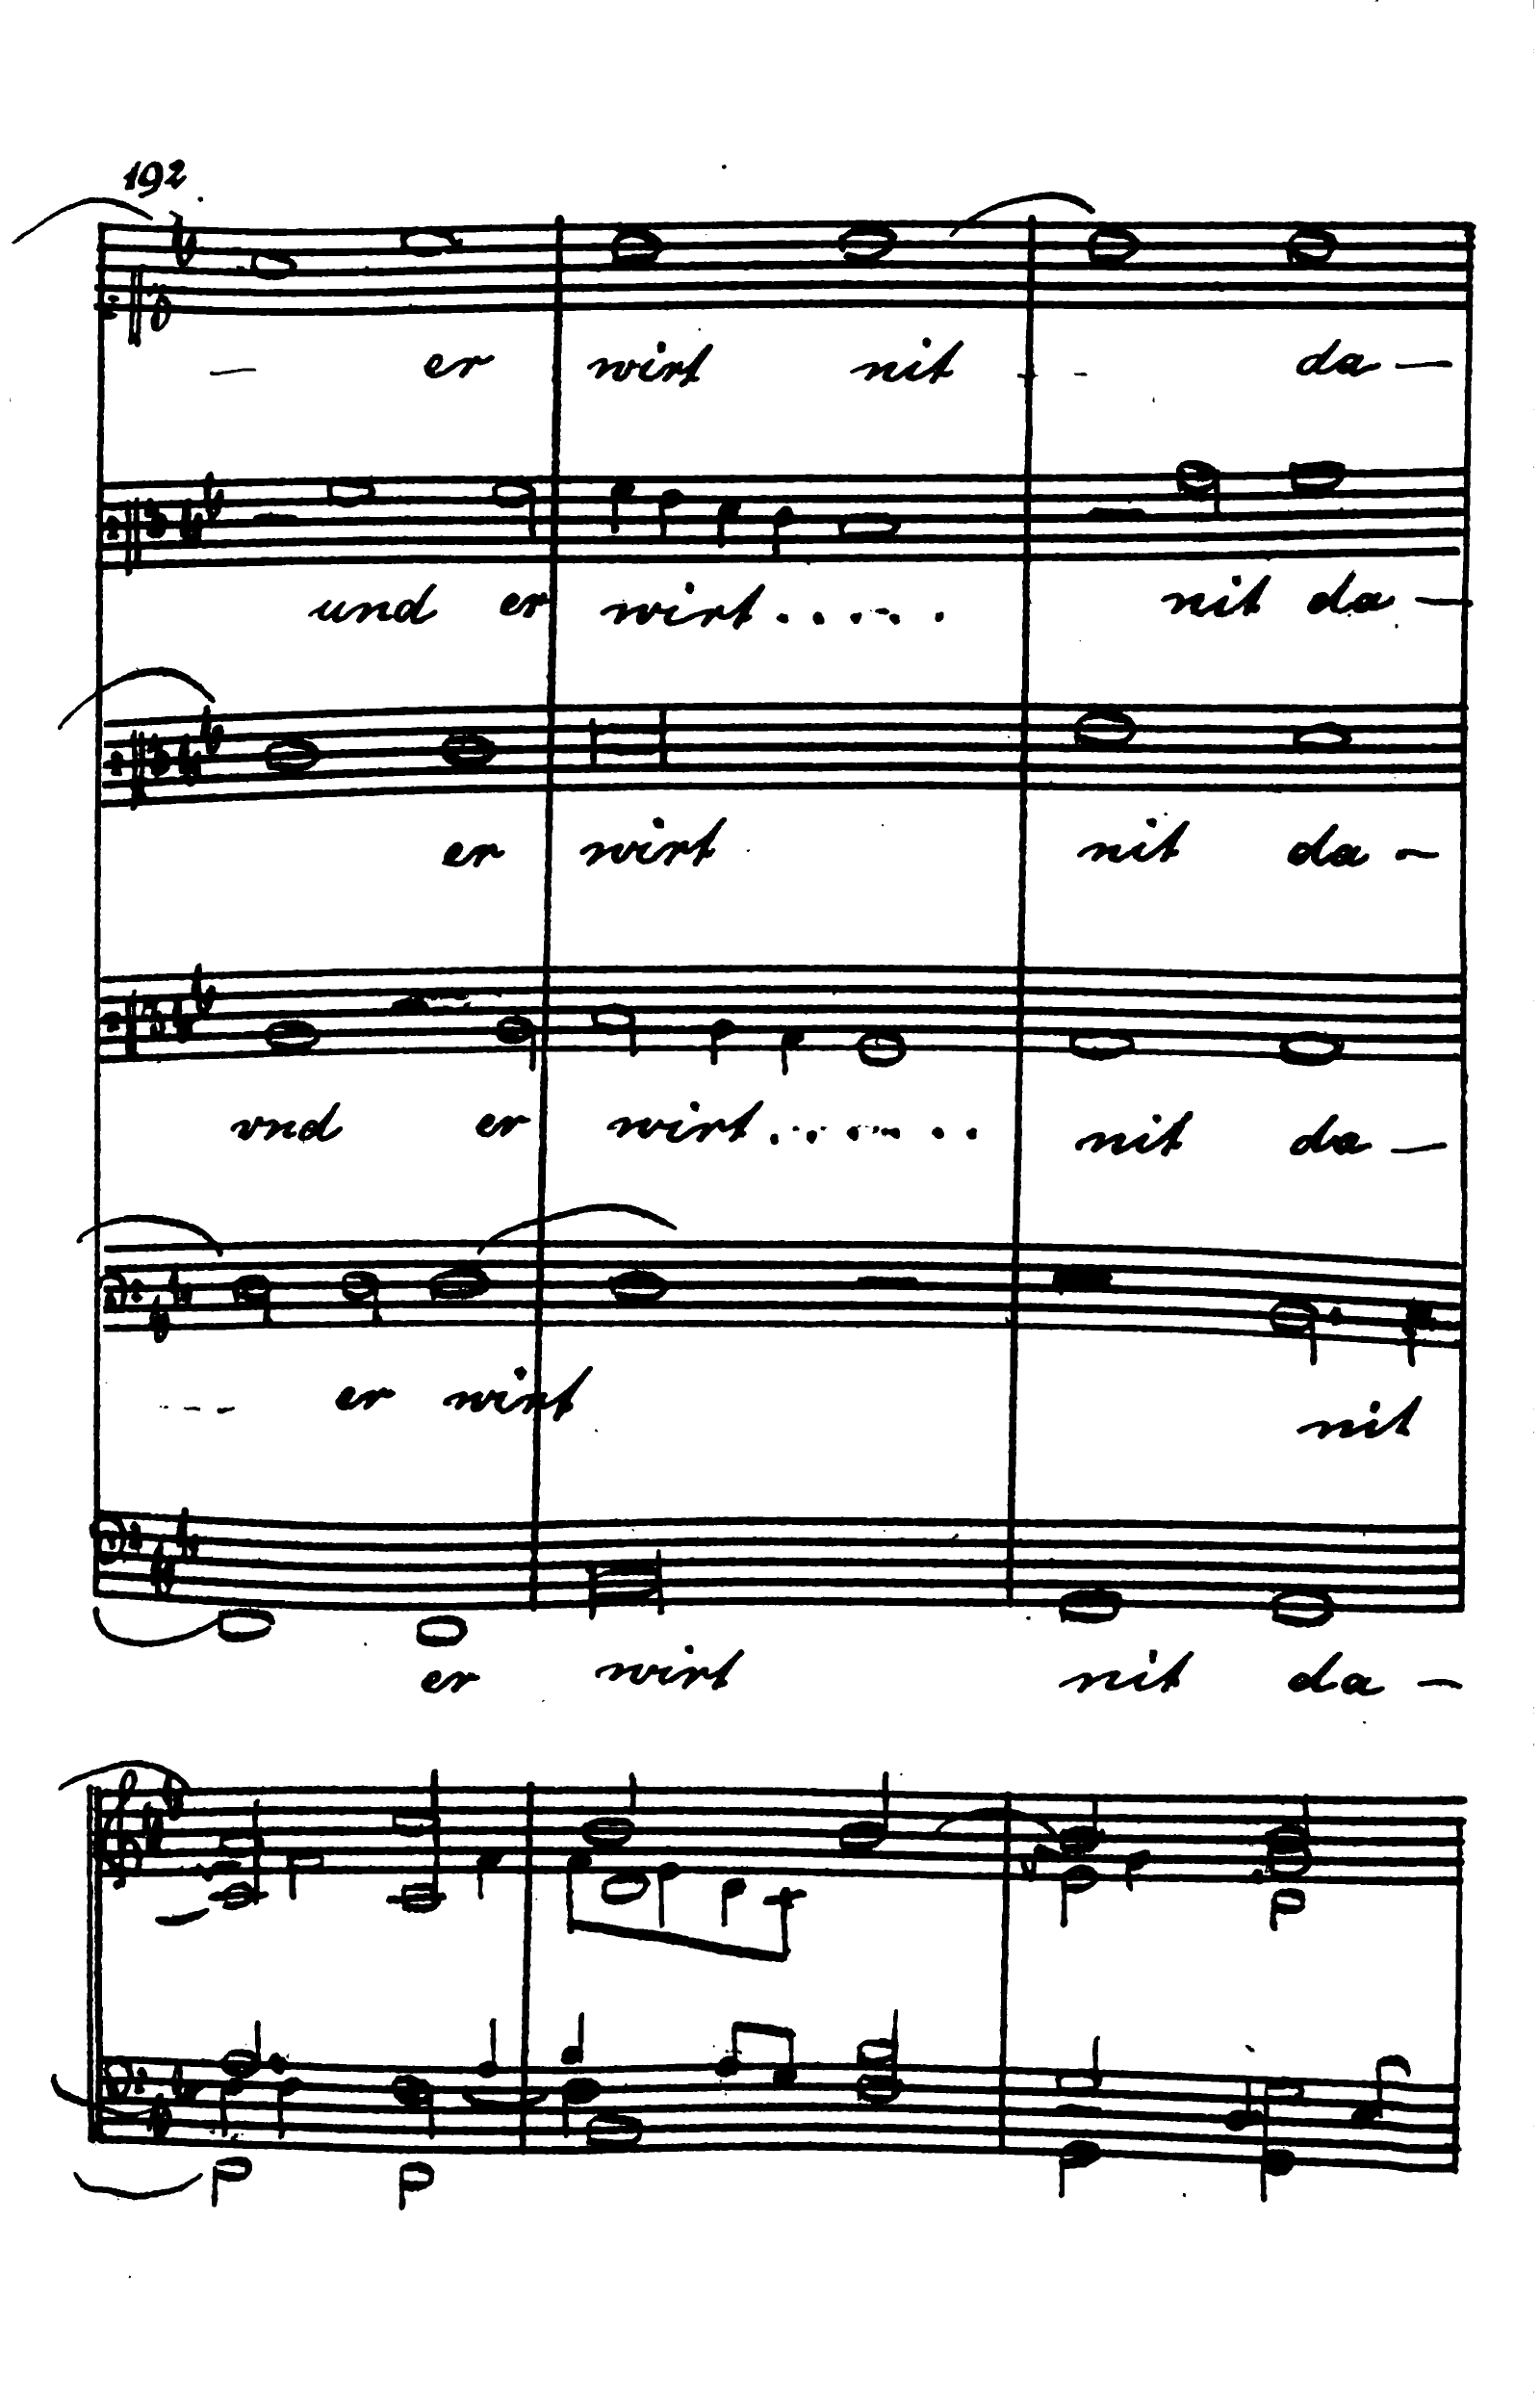 192
- er wirt nit - - da -
und er wirt...... nit da -
er wirt nit da -
vnd er wirt......... nit da -
--- er wirt nit
er wirt nit da -